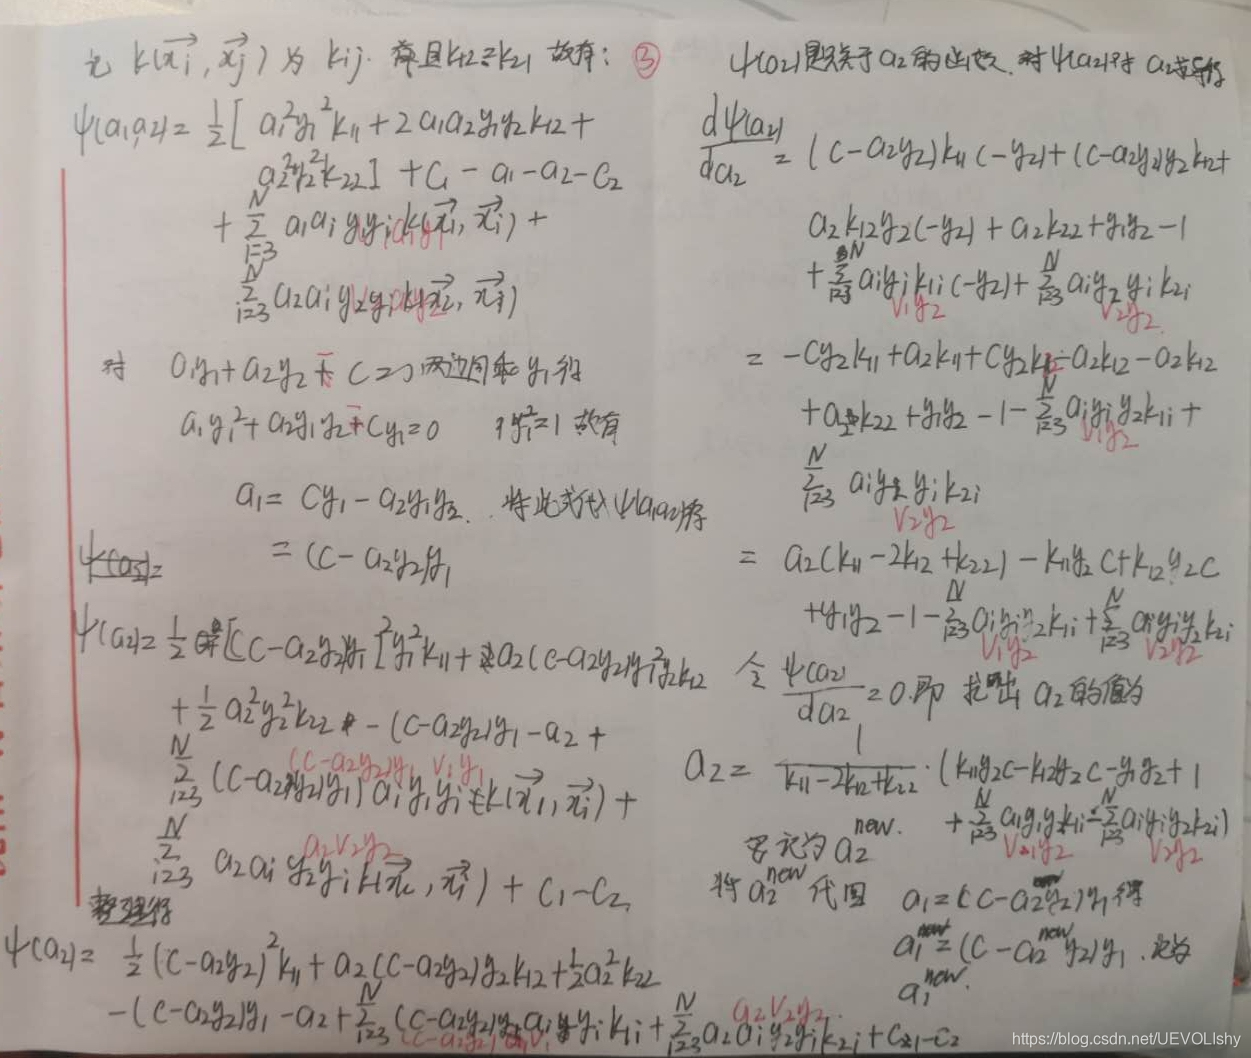 记 k(x⃗i, x⃗j) 为 kij. 并且k12=k21 故有: ③
ψ(a1,a2)= 1/2 [ a1²y1²k11 + 2a1a2y1y2k12 +
a2²y2²k22] + C1 - a1 - a2 - C2
+ Σ(i=3..N) a1 ai y1 yi k(x⃗1, x⃗i) +
Σ(i=3..N) a2 ai y2 yi k(x⃗2, x⃗i)
对 a1y1 + a2y2 - C = 0 两边同乘 y1 得
a1y1² + a2y1y2 - Cy1 = 0 y1²=1 故有
a1 = Cy1 - a2y1y2. 将此式代入 ψ(a1,a2)得
= (C - a2y2)y1
ψ(a2)=
ψ(a2)= 1/2 [(C-a2y2)y1]²y1²k11 + a2(C-a2y2)y1²y2k12
+ 1/2 a2²y2²k22 - (C-a2y2)y1 - a2 +
(C-a2y2)y1 v1y1
Σ(i=3..N) (C-a2y2)y1 ai y1 yi k(x⃗1, x⃗i) +
a2v2y2
Σ(i=3..N) a2 ai y2 yi k(x⃗2, x⃗i) + C1 - C2
整理得
ψ(a2)= 1/2 (C-a2y2)²k11 + a2(C-a2y2)y2k12 + 1/2 a2²k22
a2v2y2.
-(C-a2y2)y1 - a2 + Σ(i=3..N) (C-a2y2) ai yi k1i + Σ(i=3..N) a2 ai y2 yi k2i + C1-C2
ψ(a2)是只关于a2的函数, 对ψ(a2)对 a2求导得
dψ(a2)/da2 = (C-a2y2)k11(-y2) + (C-a2y2)y2k12 +
a2k12y2(-y2) + a2k22 + y1y2 - 1
+ Σ(i=3..N) ai yi k1i (-y2) + Σ(i=3..N) ai y2 yi k2i
v1y2 v2y2
= -Cy2k11 + a2k11 + Cy2k12 - a2k12 - a2k12
+ a2k22 + y1y2 - 1 - Σ(i=3..N) ai yi y2 k1i +
v1y2
Σ(i=3..N) ai y2 yi k2i
v2y2
= a2(k11 - 2k12 + k22) - k11y2C + k12y2C
+ y1y2 - 1 - Σ(i=3..N) ai yi y2 k1i + Σ(i=3..N) ai yi y2 k2i
v1y2 v2y2
令 ψ(a2)/da2 = 0. 即 求出 a2的值为
a2 = 1/(k11-2k12+k22) · (k11y2C - k12y2C - y1y2 + 1
+ Σ(i=3..N) ai yi y2 k1i - Σ(i=3..N) ai yi y2 k2i)
v1y2 v2y2
记为 a2^new.
将 a2^new 代回 a1 = (C-a2y2)y1 得
a1^new = (C - a2^new y2)y1. 记为
a1^new.
https://blog.csdn.net/UEVOLIshy